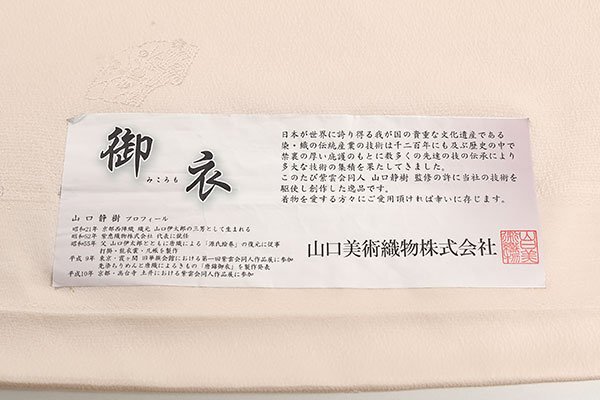 御衣
みころも
山口静樹 プロフィール
昭和21年 京都西陣織 織元 山口伊太郎の三男として生まれる
昭和52年 紫恵織物株式会社 代表に就任
昭和55年 父 山口伊太郎とともに唐織による「源氏絵巻」の復元に従事
打掛・能衣裳・几帳を製作
平成 9年 東京・霞ヶ関 旧華族会館における第一回紫雲会同人作品展に参加
先染ちりめんと唐織によるきもの「唐錦御衣」を製作発表
平成10年 京都・高台寺 土井における紫雲会同人作品展に参加
日本が世界に誇り得る我が国の貴重な文化遺産である
染・織の伝統産業の技術は千二百年にも及ぶ歴史の中で
禁裏の厚い庇護のもとに数多くの先達の技の伝承により
多大な技術の集積を果たしてきました。
このたび紫雲会同人 山口静樹 監修の許に当社の技術を
駆使し創作した逸品です。
着物を愛する方々にご愛用頂ければ幸いに存じます。
山口美術織物株式会社